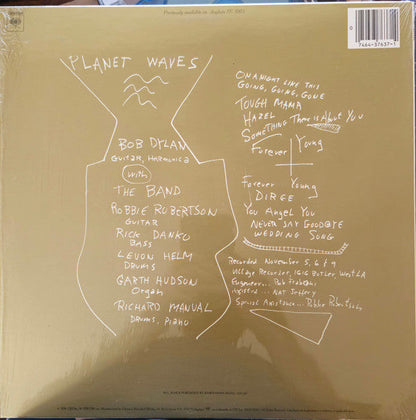 Previously available on Asylum
PLANET WAVES
BOB DYLAN
GUITAR, HARMONICA
with
THE BAND
ROBBIE ROBERTSON
GUITAR
RICK DANKO
BASS
LEVON HELM
DRUMS
GARTH HUDSON
Organ
RICHARD MANUAL
DRUMS, piano
ON A NIGHT LIKE THIS
GOING, GOING, GONE
TOUGH MAMA
HAZEL
SOMETHING There is About You
Forever Young
Forever Young
DIRGE
You Angel You
NEVER SAY GOODBYE
WEDDING SONG
Recorded November 5, 6 & 9
Village Recorder, 1616 Butler, West LA
Engineer... Rob Fraboni
Assisted... NAT Jeffery
Special Assistance... Robbie Robertson
0
7464-37637-1